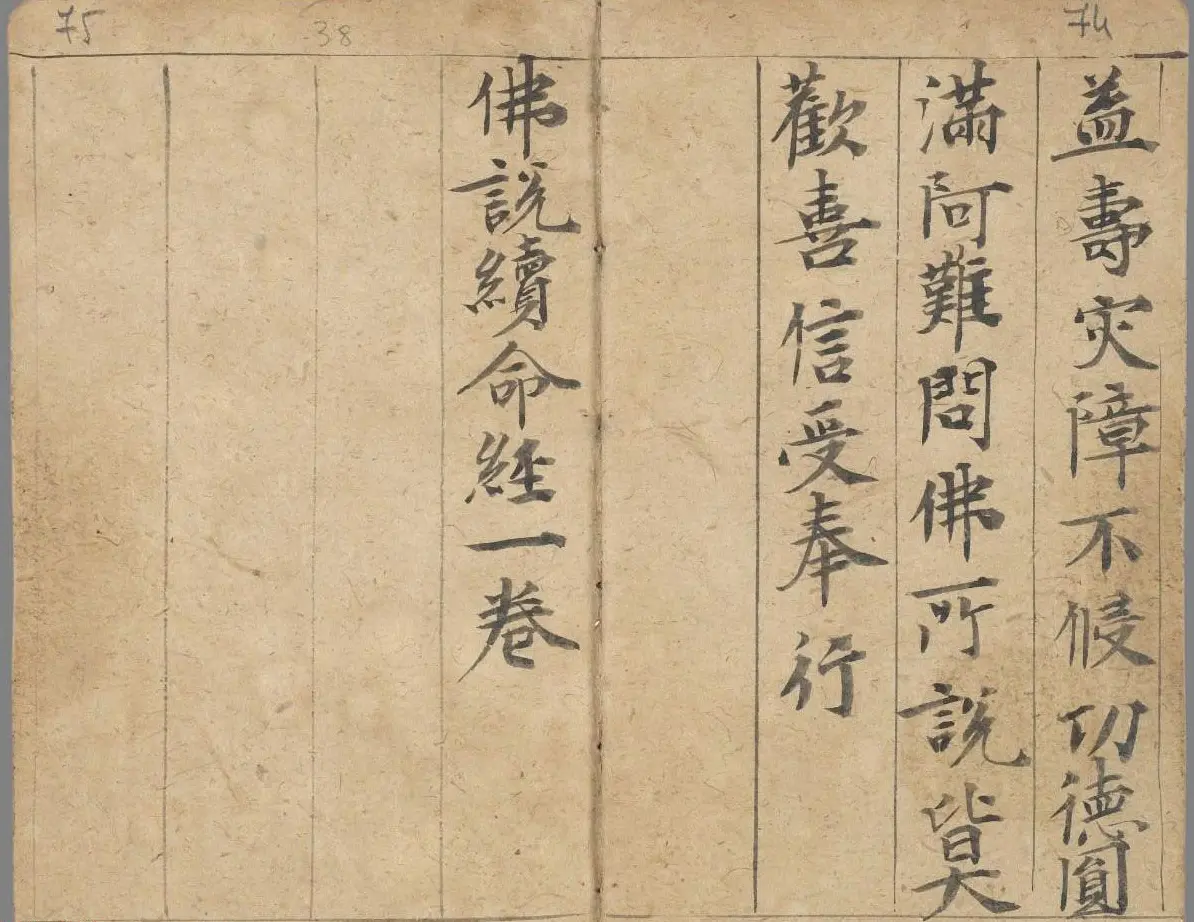 74
益壽灾障不侵功德圓
滿阿難問佛所說皆大
歡喜信受奉行
75
38
佛說續命經一卷